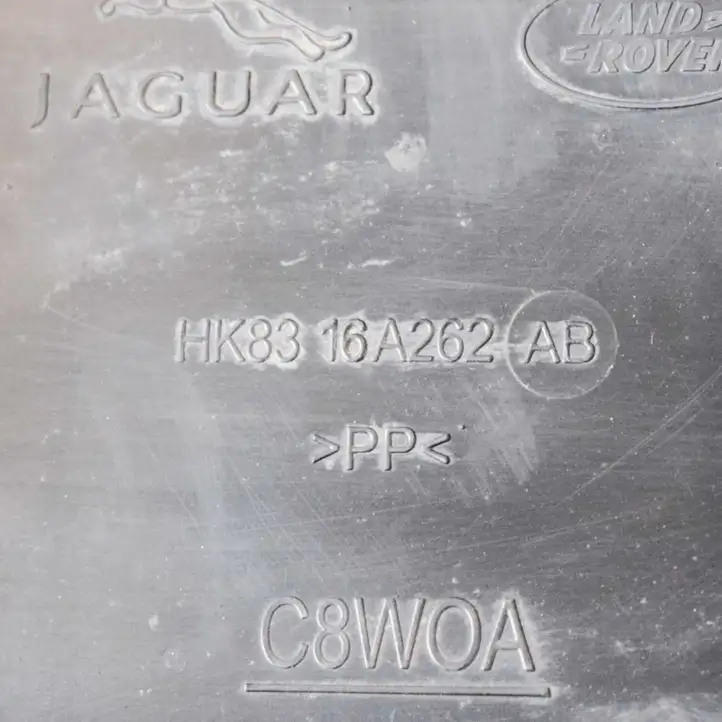 JAGUAR
LAND-
-ROVER
HK83 16A262 AB
>PP<
C8WOA